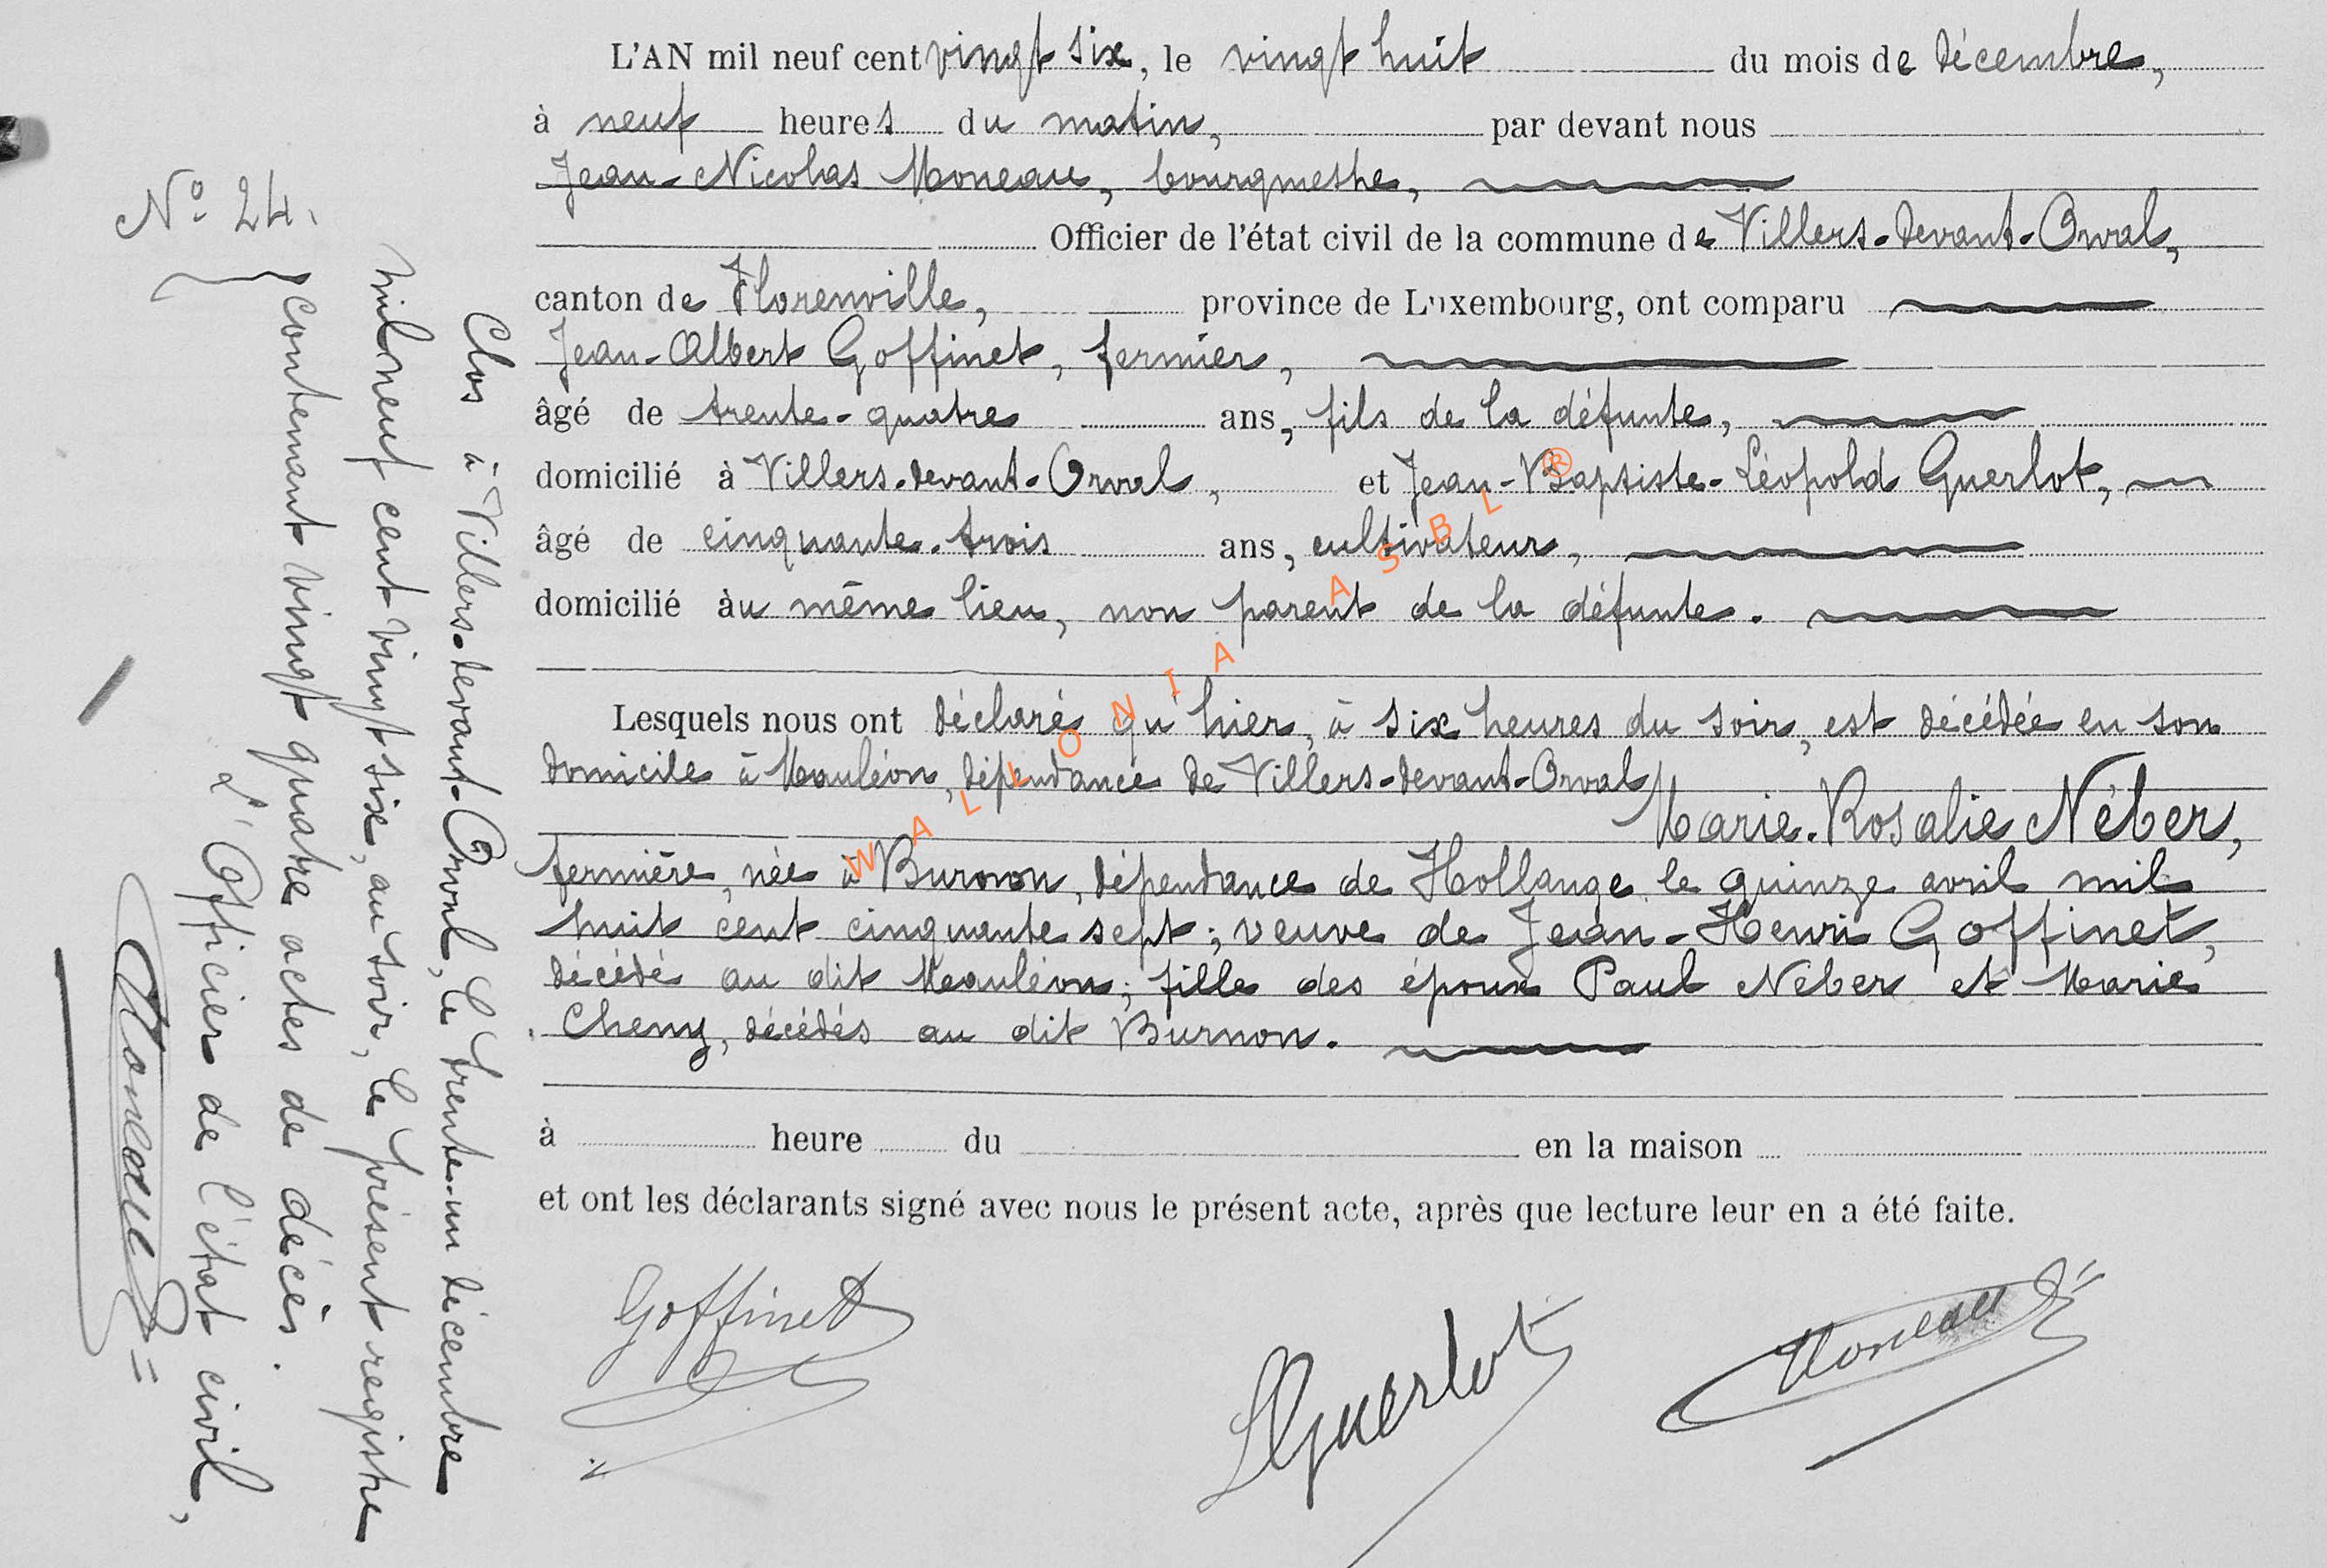 L'AN mil neuf cent vingt six, le vingt huit du mois de décembre,
à neuf heures du matin, par devant nous
Jean-Nicolas Moneau, bourgmestre,
Officier de l'état civil de la commune de Villers-devant-Orval,
canton de Florenville, province de Luxembourg, ont comparu
Jean-Albert Goffinet, fermier,
âgé de trente-quatre ans, fils de la défunte,
domicilié à Villers-devant-Orval, et Jean-Baptiste-Léopold Guerlot,
âgé de cinquante-trois ans, cultivateur,
domicilié àu même lieu, non parent de la défunte.
Lesquels nous ont déclaré qu'hier, à six heures du soir, est décédée en son
domicile à Mauléon, dépendance de Villers-devant-Orval
Marie-Rosalie Néber,
fermière, née à Burnon, dépendance de Hollange le quinze avril mil
huit cent cinquante sept; veuve de Jean-Henri Goffinet,
décédé au dit Mauléon; fille des époux Paul Néber et Marie
Cheny, décédés au dit Burnon.
à heure du en la maison
et ont les déclarants signé avec nous le présent acte, après que lecture leur en a été faite.
Goffinet
LGuerlot
Moneau
N° 24.
Clos à Villers-devant-Orval, le trente-un décembre
mil neuf cent vingt six, au soir, le présent registre
contenant vingt quatre actes de décès.
L'Officier de l'état civil,
Moneau
WALLONIA ASBL ®